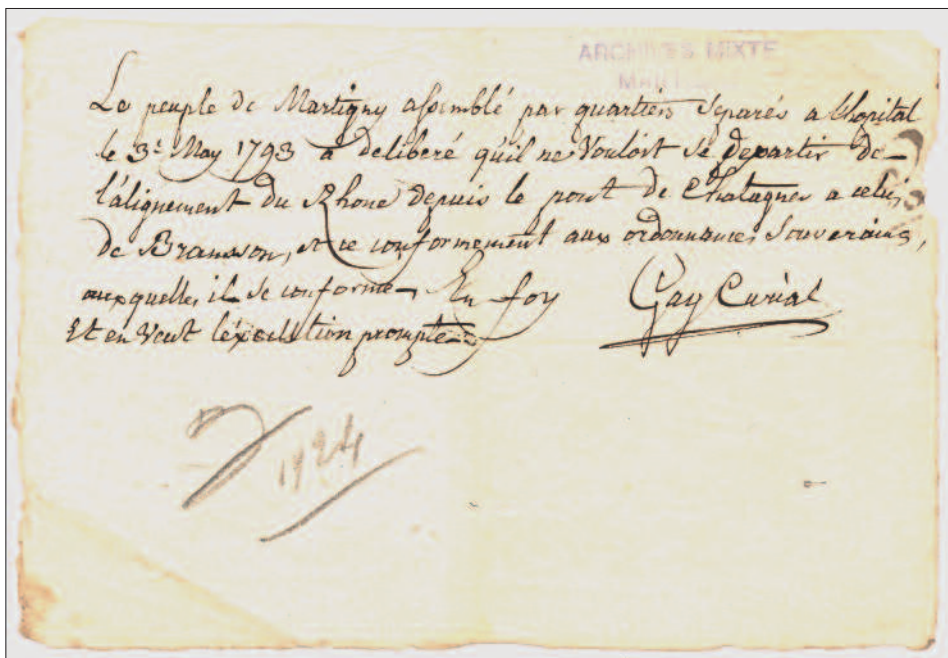 ARCHIVES MIXTE
Le peuple de Martigny assemblé par quartiers séparés a l'hopital
le 3e May 1793 a deliberé qu'il ne Vouloit se departir de
l'alignement du Rhone depuis le pont de Chatagner a celui
de Branson, et ce conformement aux ordonnances Souveraines,
auxquelles il se conforme En foy Gay Curial
Et en Veut l'éxecution prompte
1924